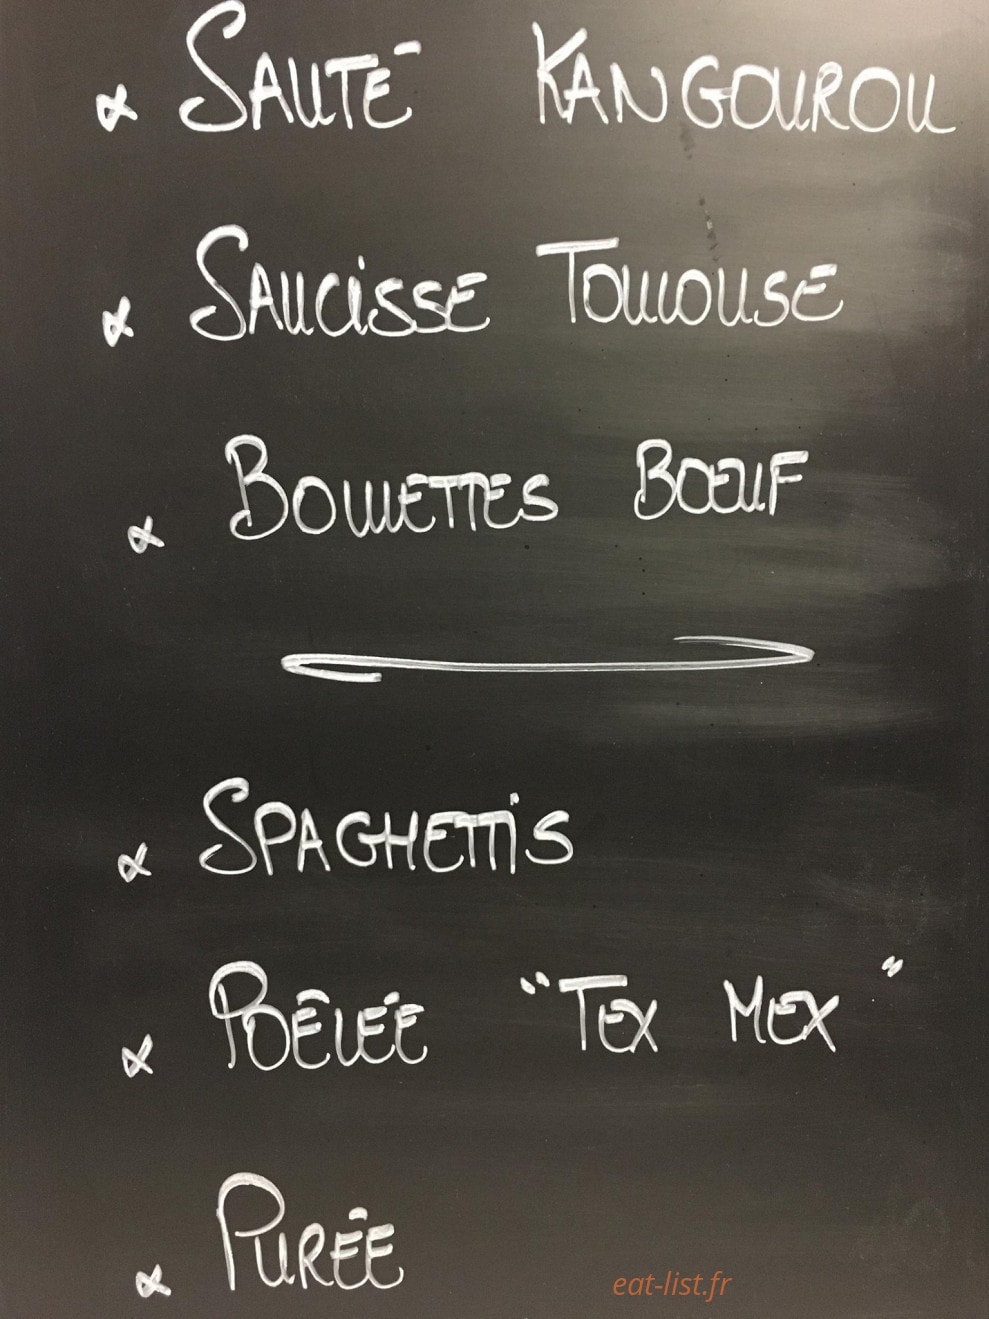 SAUTÉ KANGOUROU
SAUCISSE TOULOUSE
BOULETTES BŒUF
SPAGHETTIS
POÊLÉE "TEX MEX"
PURÉE
eat-list.fr